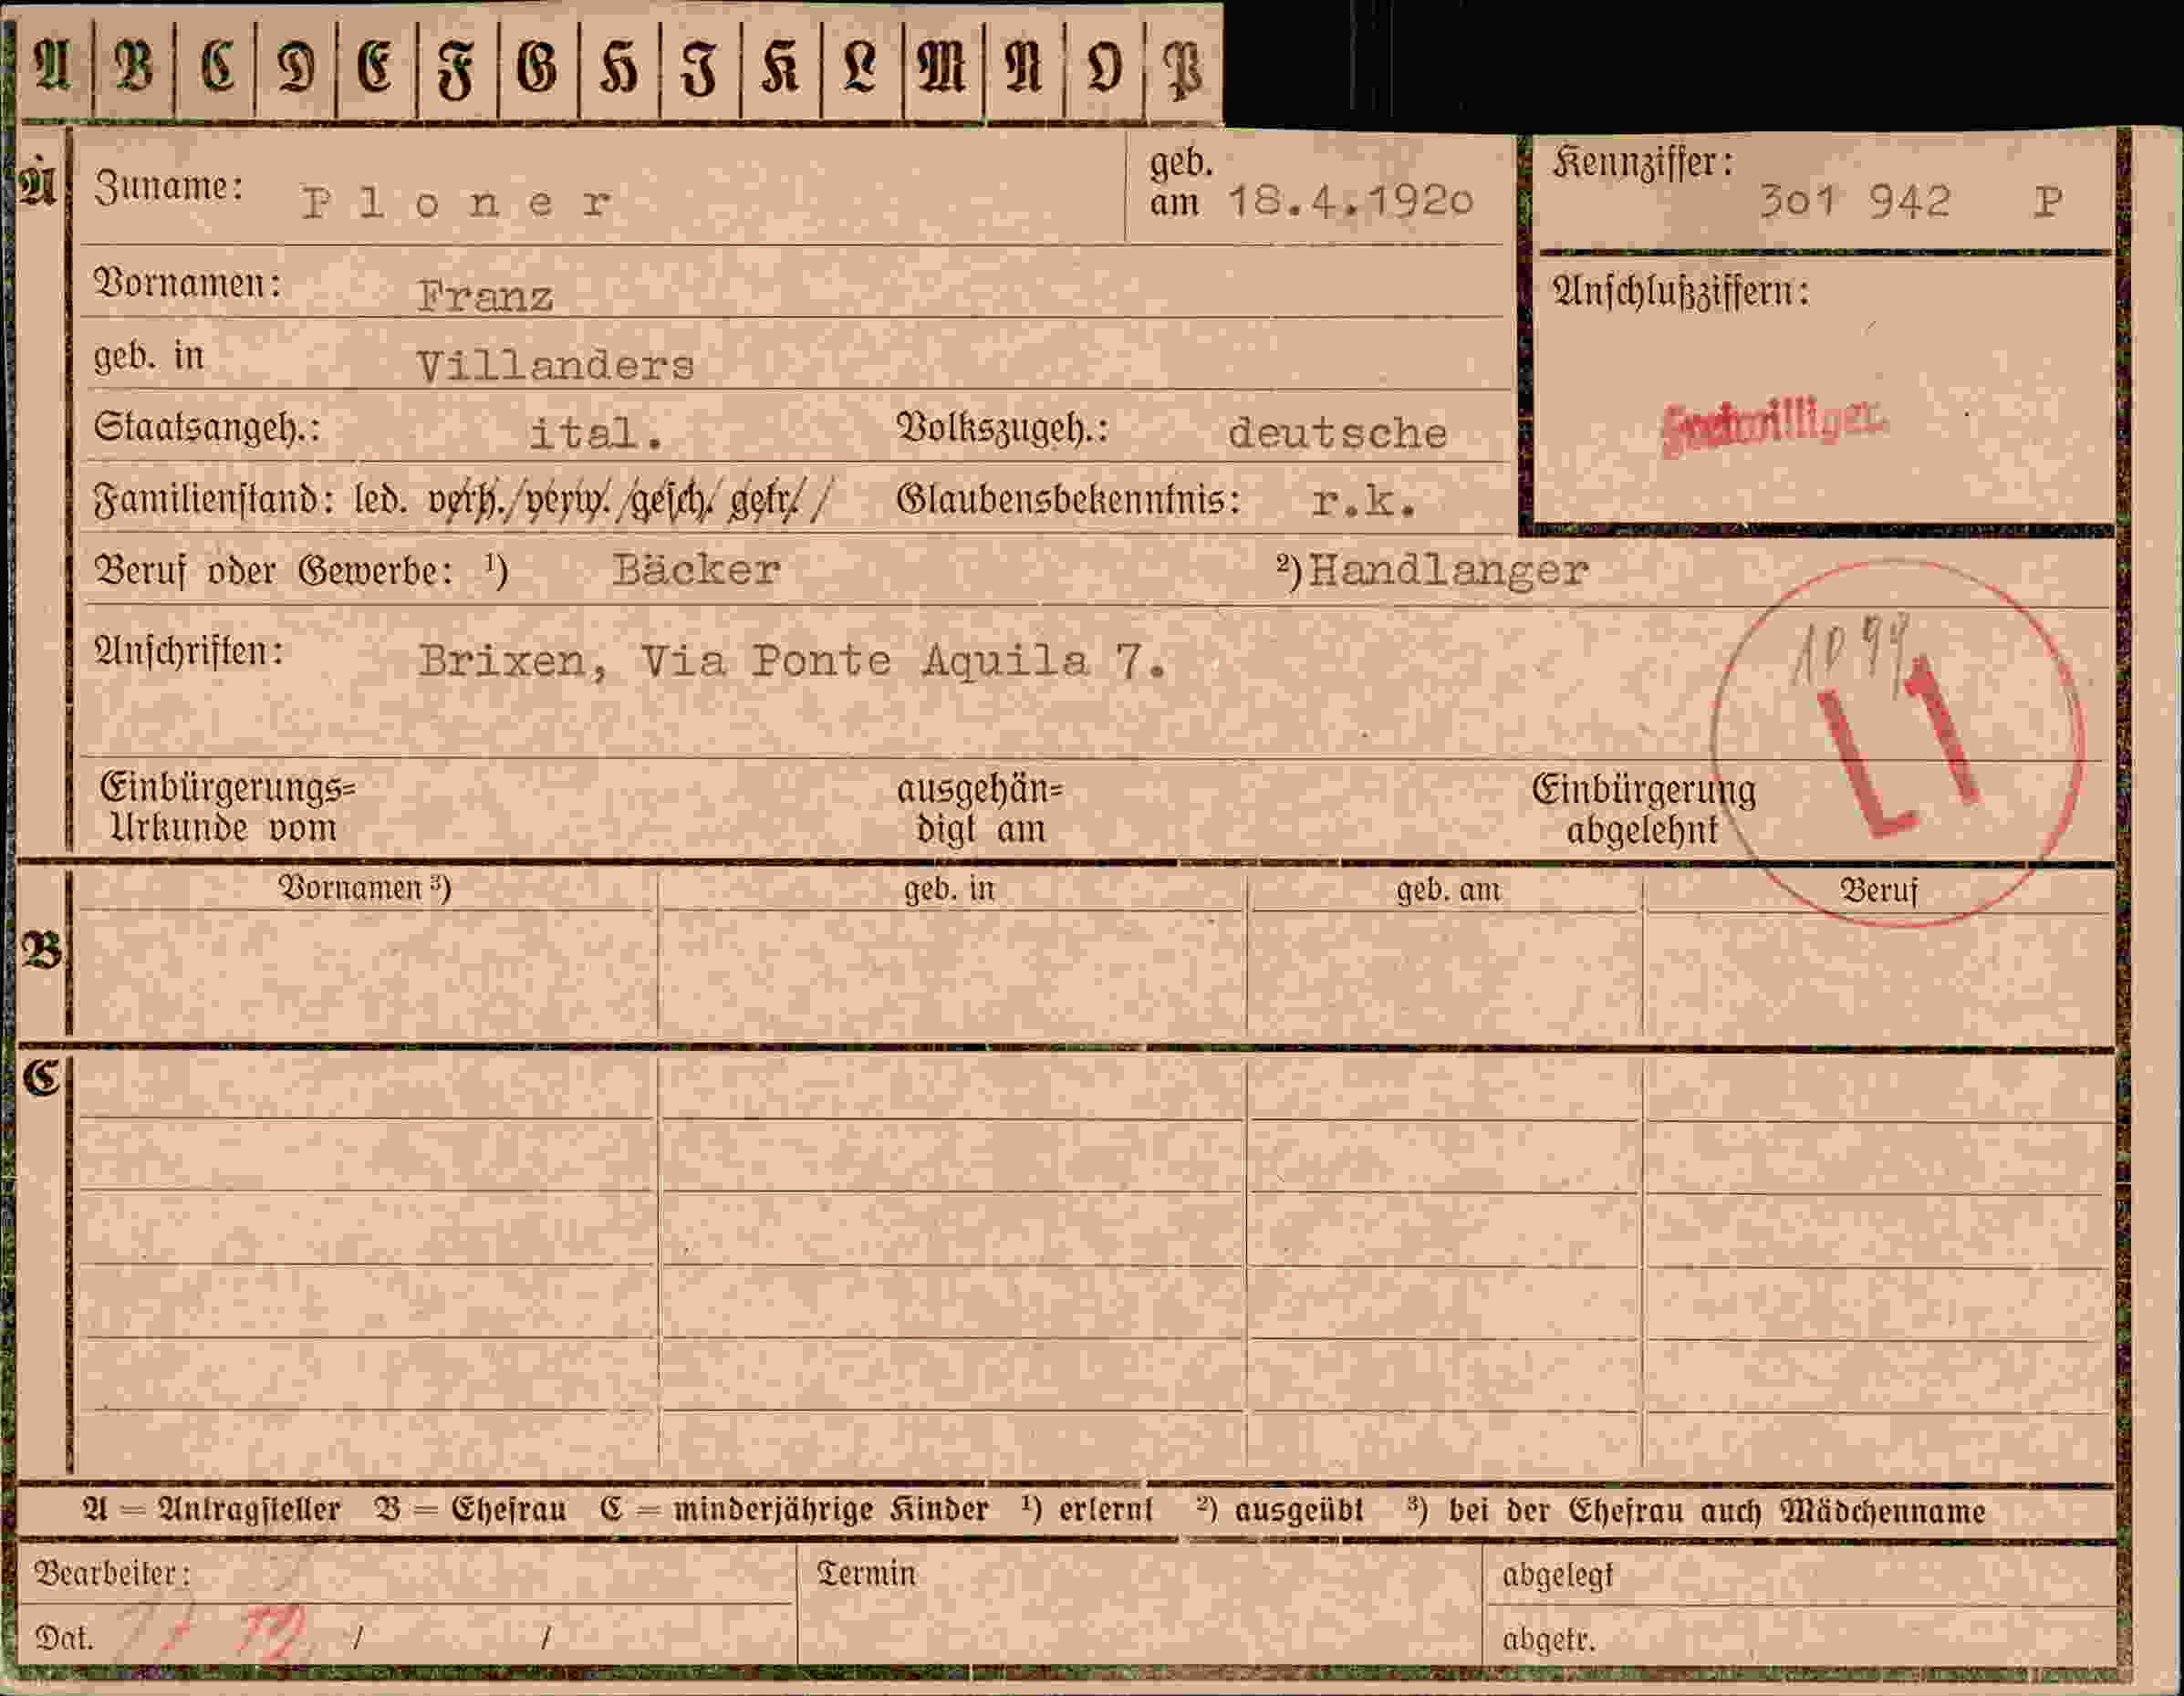 A B C D E F G H I K L M N O P
A Zuname: Ploner geb. am 18.4.1920 Kennziffer: 301 942 P
Vornamen: Franz Anschlußziffern:
geb. in Villanders
Staatsangeh.: ital. Volkszugeh.: deutsche Freiwilliger
Familienstand: led. verh./verw./gesch./getr./ Glaubensbekenntnis: r.k.
Beruf oder Gewerbe: ¹) Bäcker ²) Handlanger
Anschriften: Brixen, Via Ponte Aquila 7.
L1
Einbürgerungs= ausgehän= Einbürgerung
Urkunde vom digt am abgelehnt
Vornamen ³) geb. in geb. am Beruf
B
C
A = Antragsteller B = Ehefrau C = minderjährige Kinder ¹) erlernt ²) ausgeübt ³) bei der Ehefrau auch Mädchenname
Bearbeiter: Termin abgelegt
Dat. / / abgetr.